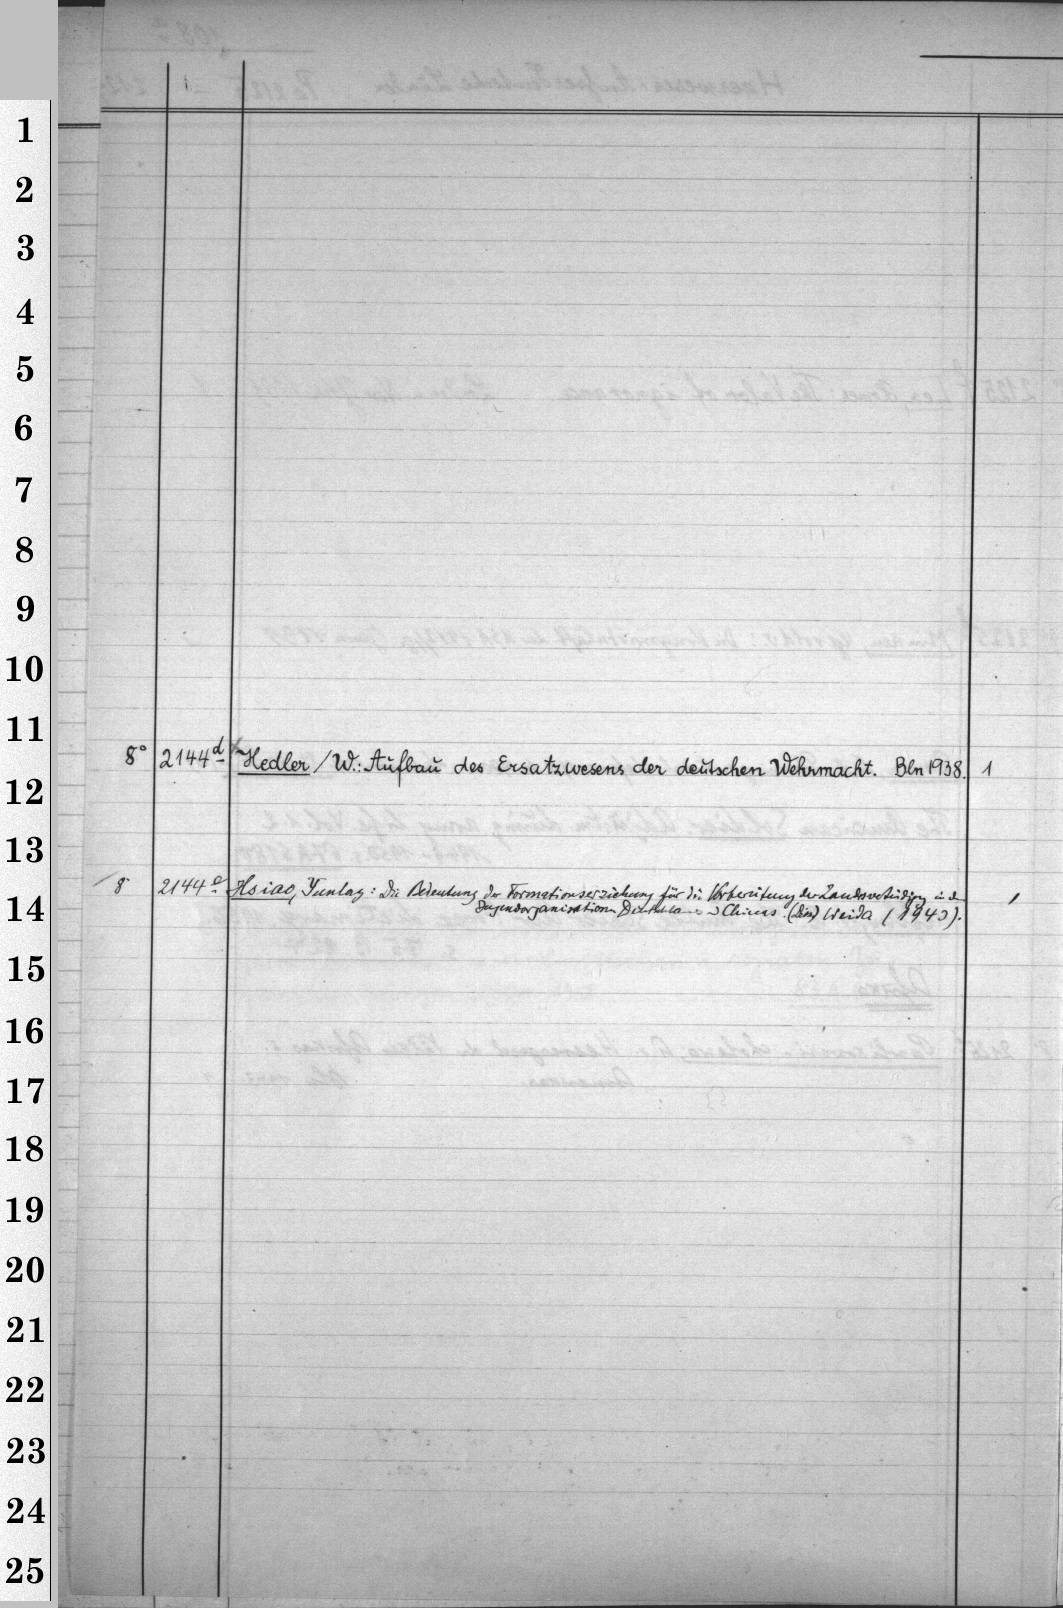 1
2
3
4
5
6
7
8
9
10
11
8° 2144d Hedler/W.: Aufbau des Ersatzwesens der deutschen Wehrmacht. Bln 1938. 1
12
13
8° 2144e Hsiao, Yuntay: Die Bedeutung der Formationserziehung für die Vorbereitung der Landesverteidigung in den
14
Jugendorganisationen Deutschlands u Chinas. (Diss) Weida (1943). 1
15
16
17
18
19
20
21
22
23
24
25